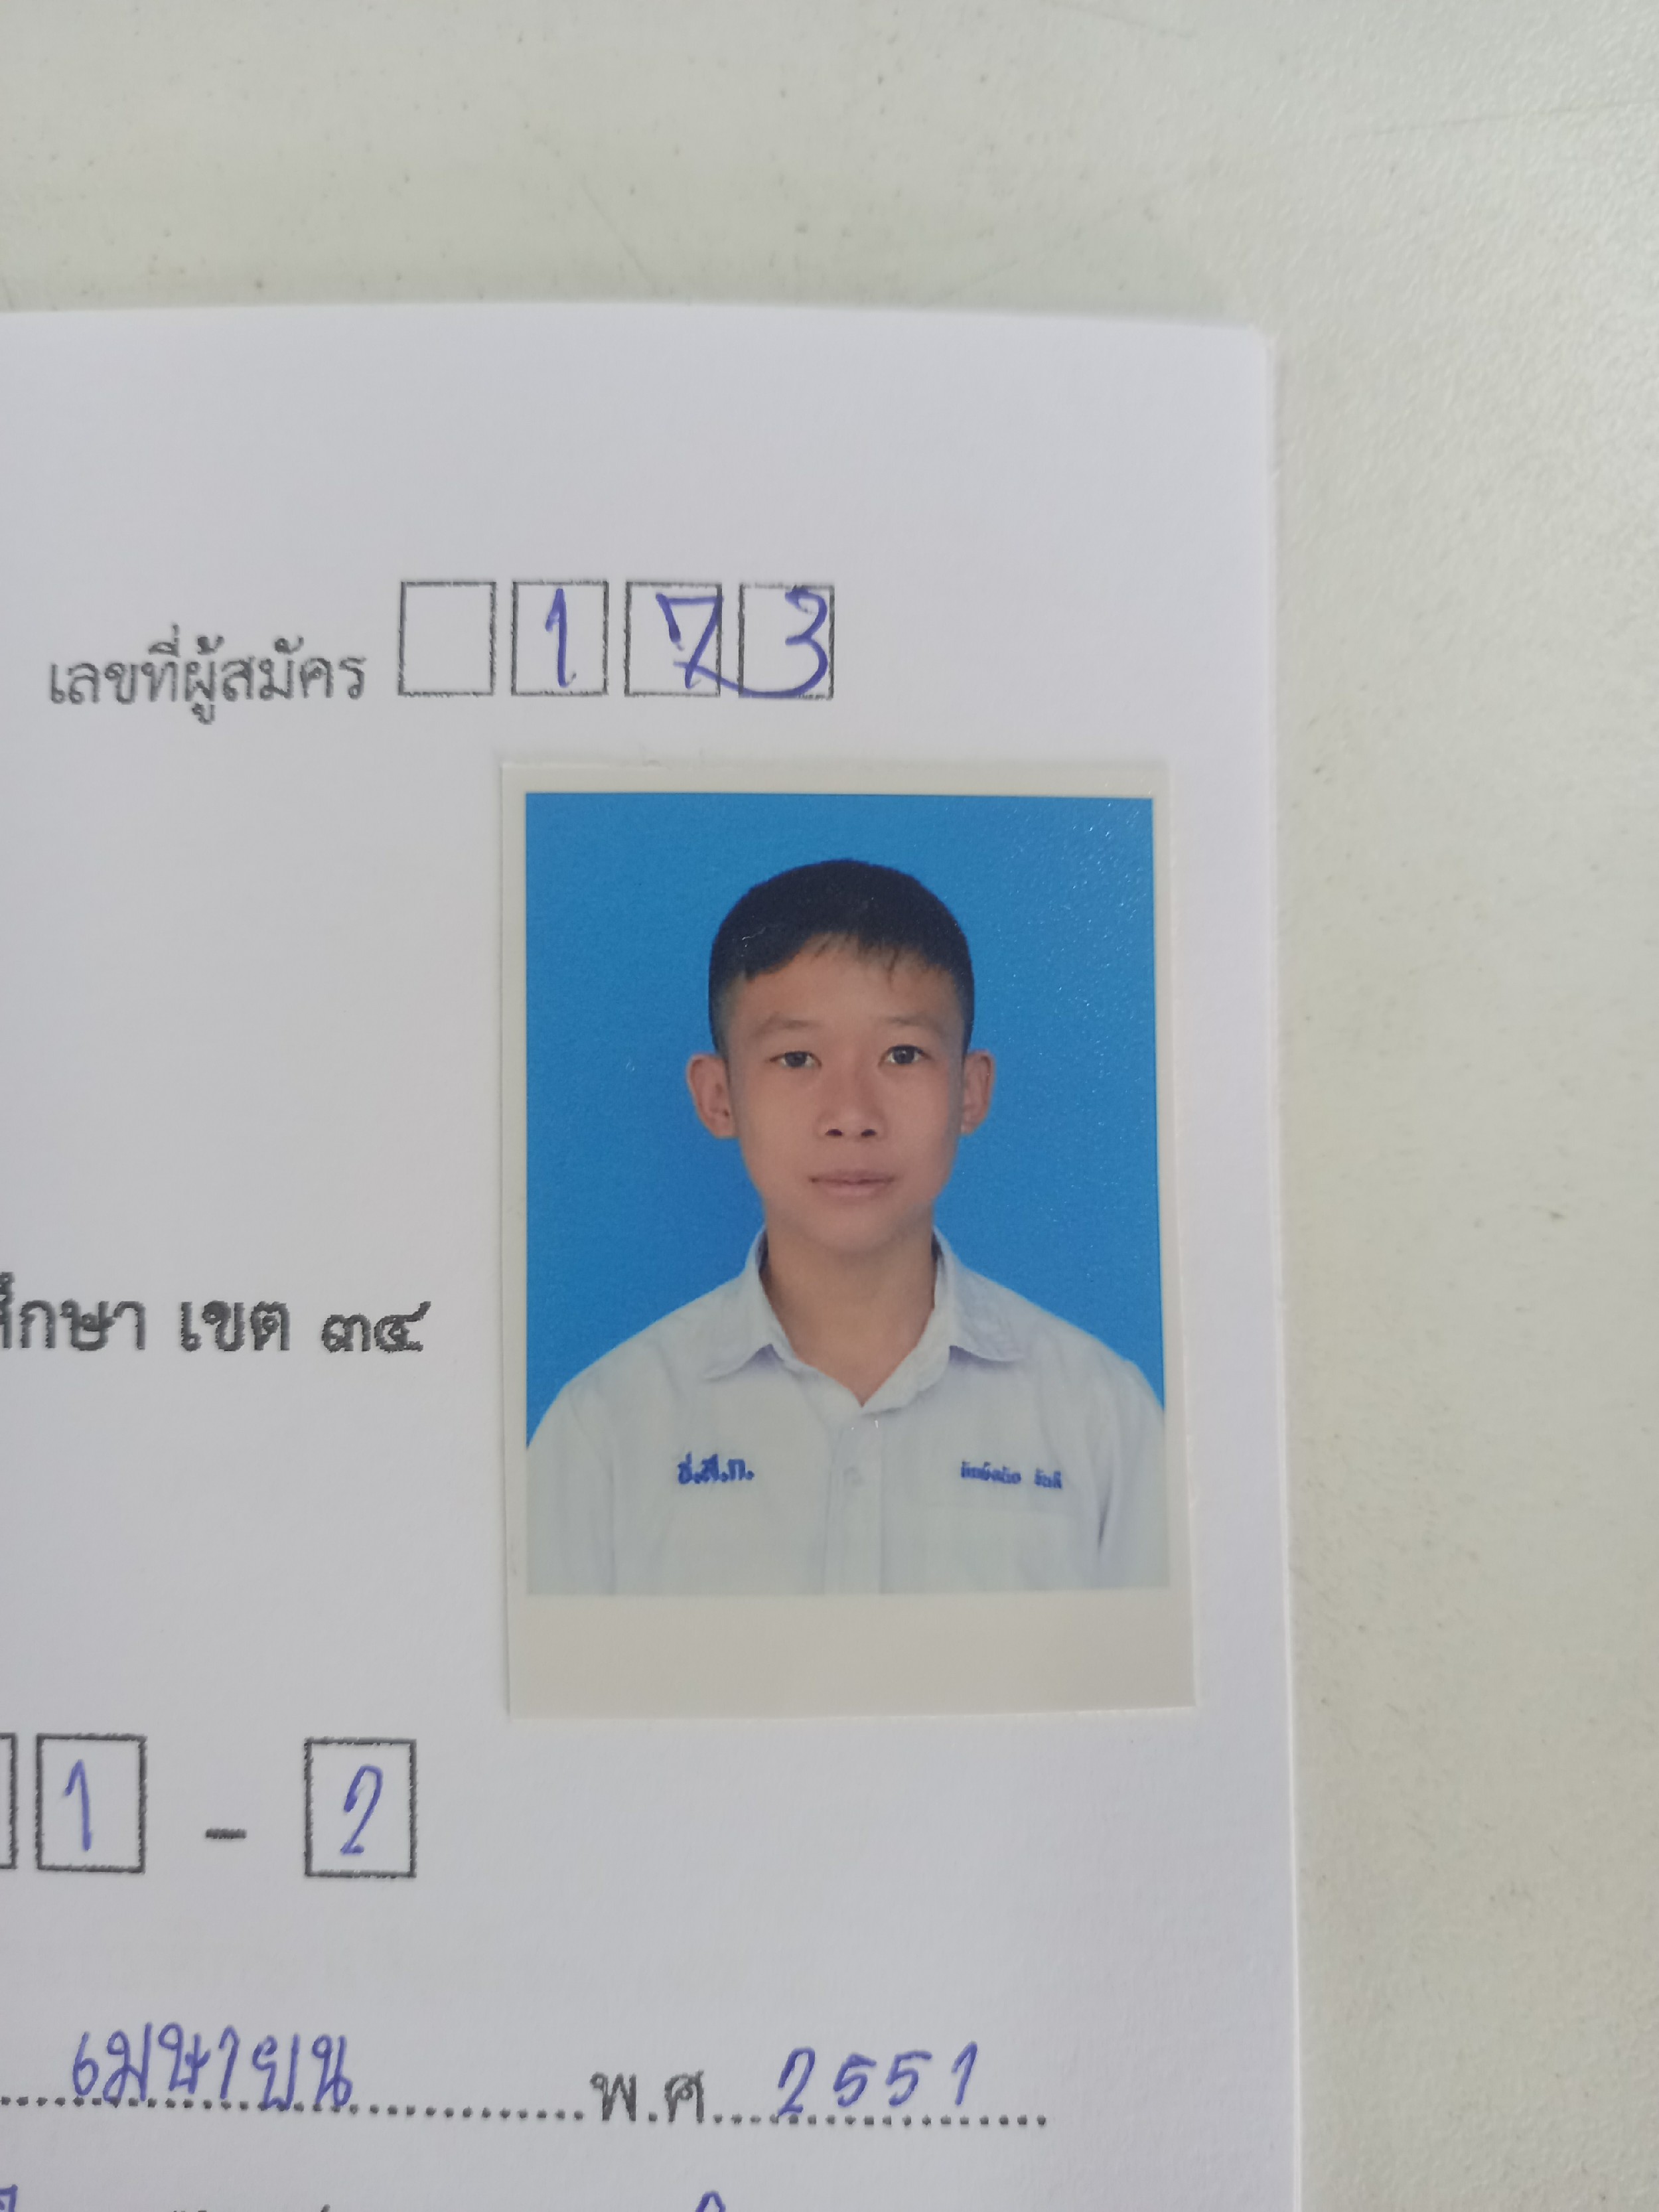 เลขที่ผู้สมัคร 1 7 3
ศึกษา เขต ๓๔
ธ.ส.ก.
1 - 2
เมษายน พ.ศ. 2551